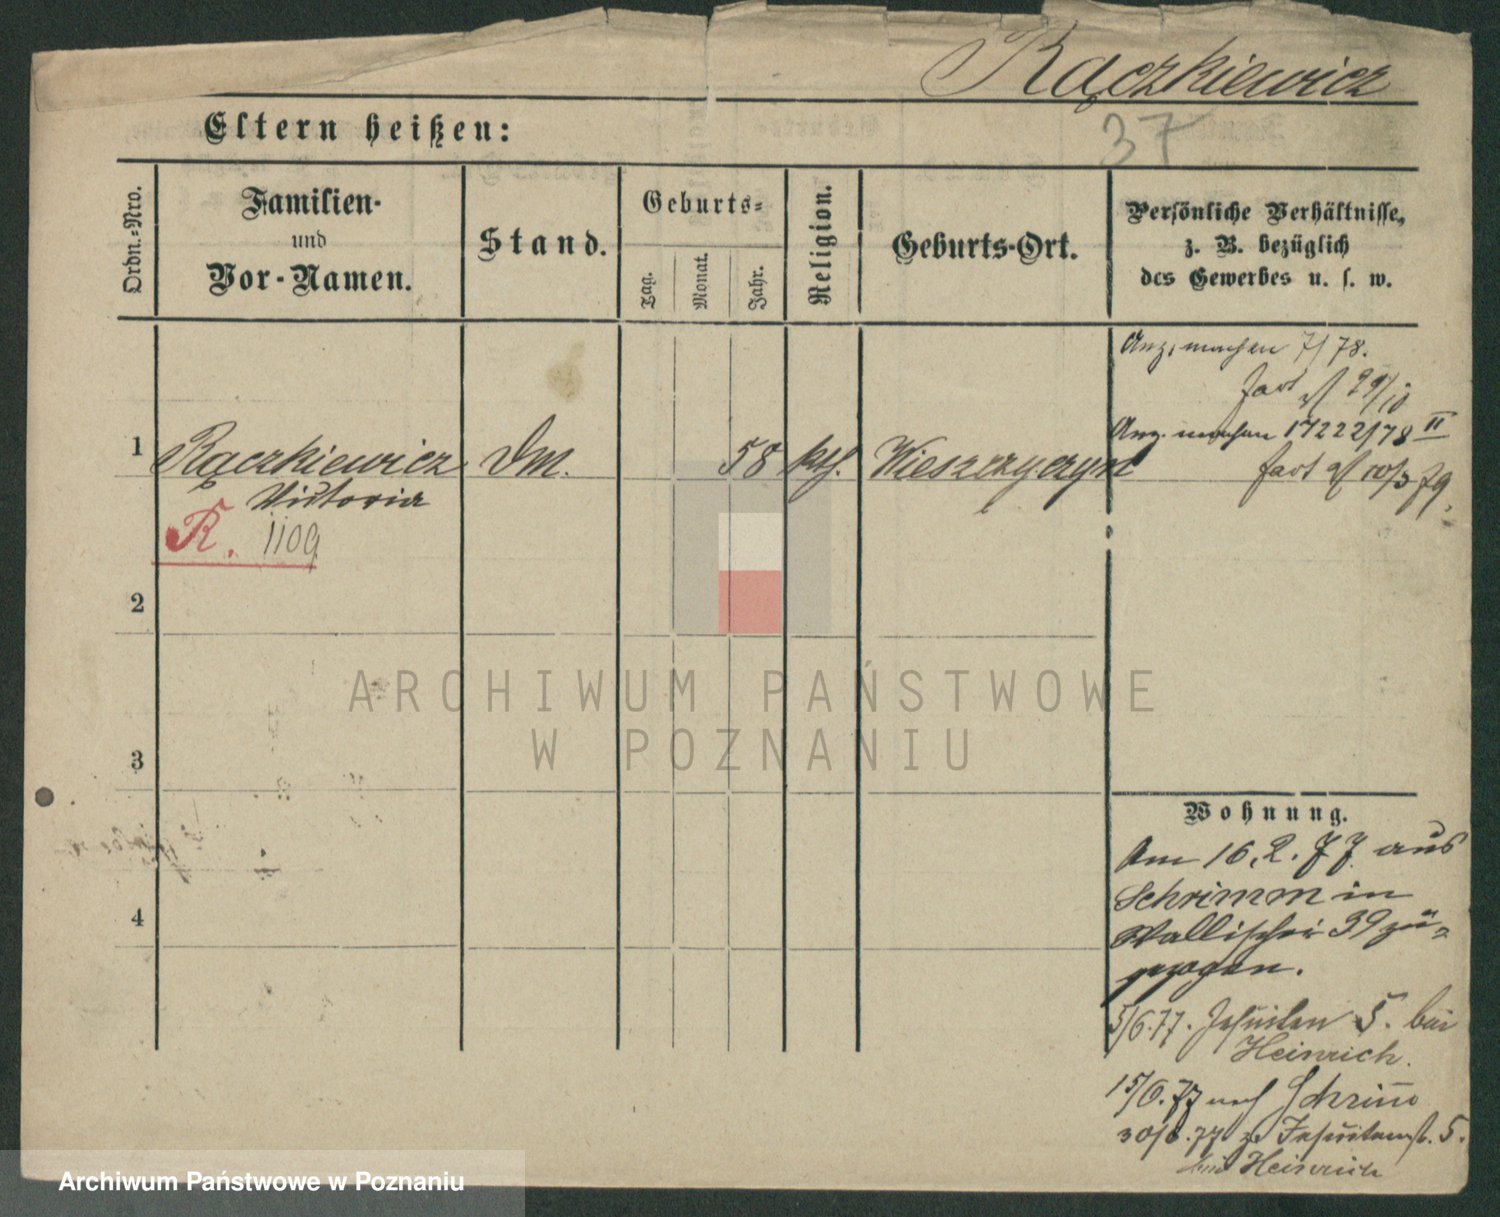 Rączkiewicz
37
Eltern heißen:
Ordn.-Nro.
Familien-
und
Vor-Namen.
Stand.
Geburts-
Tag.
Monat.
Jahr.
Religion.
Geburts-Ort.
Persönliche Verhältnisse,
z. B. bezüglich
des Gewerbes u. s. w.
Anz. machen 7/78.
fort
1
Rączkiewicz
Dm.
58
kth.
Wieszczyczyn
Anz. machen 17222/78 II
fort 10/3 79.
Victoria
R. 1109
2
3
4
ARCHIWUM PAŃSTWOWE
W POZNANIU
Wohnung.
Am 16.2.77 aus
Schrimm in
Wallischei 39 zu-
gezogen.
5/6.77. Jesuiten 5. bei
Heinrich.
15/6.77 nach Schrim̄
30/6.77 Jesuitenst. 5.
bei Heinrich
Archiwum Państwowe w Poznaniu